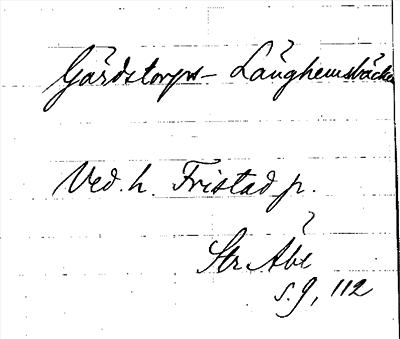 Gårdstorps- Långhemsbäcken
Ved. h. Fristad p.
Str Åbe
s. 9, 112